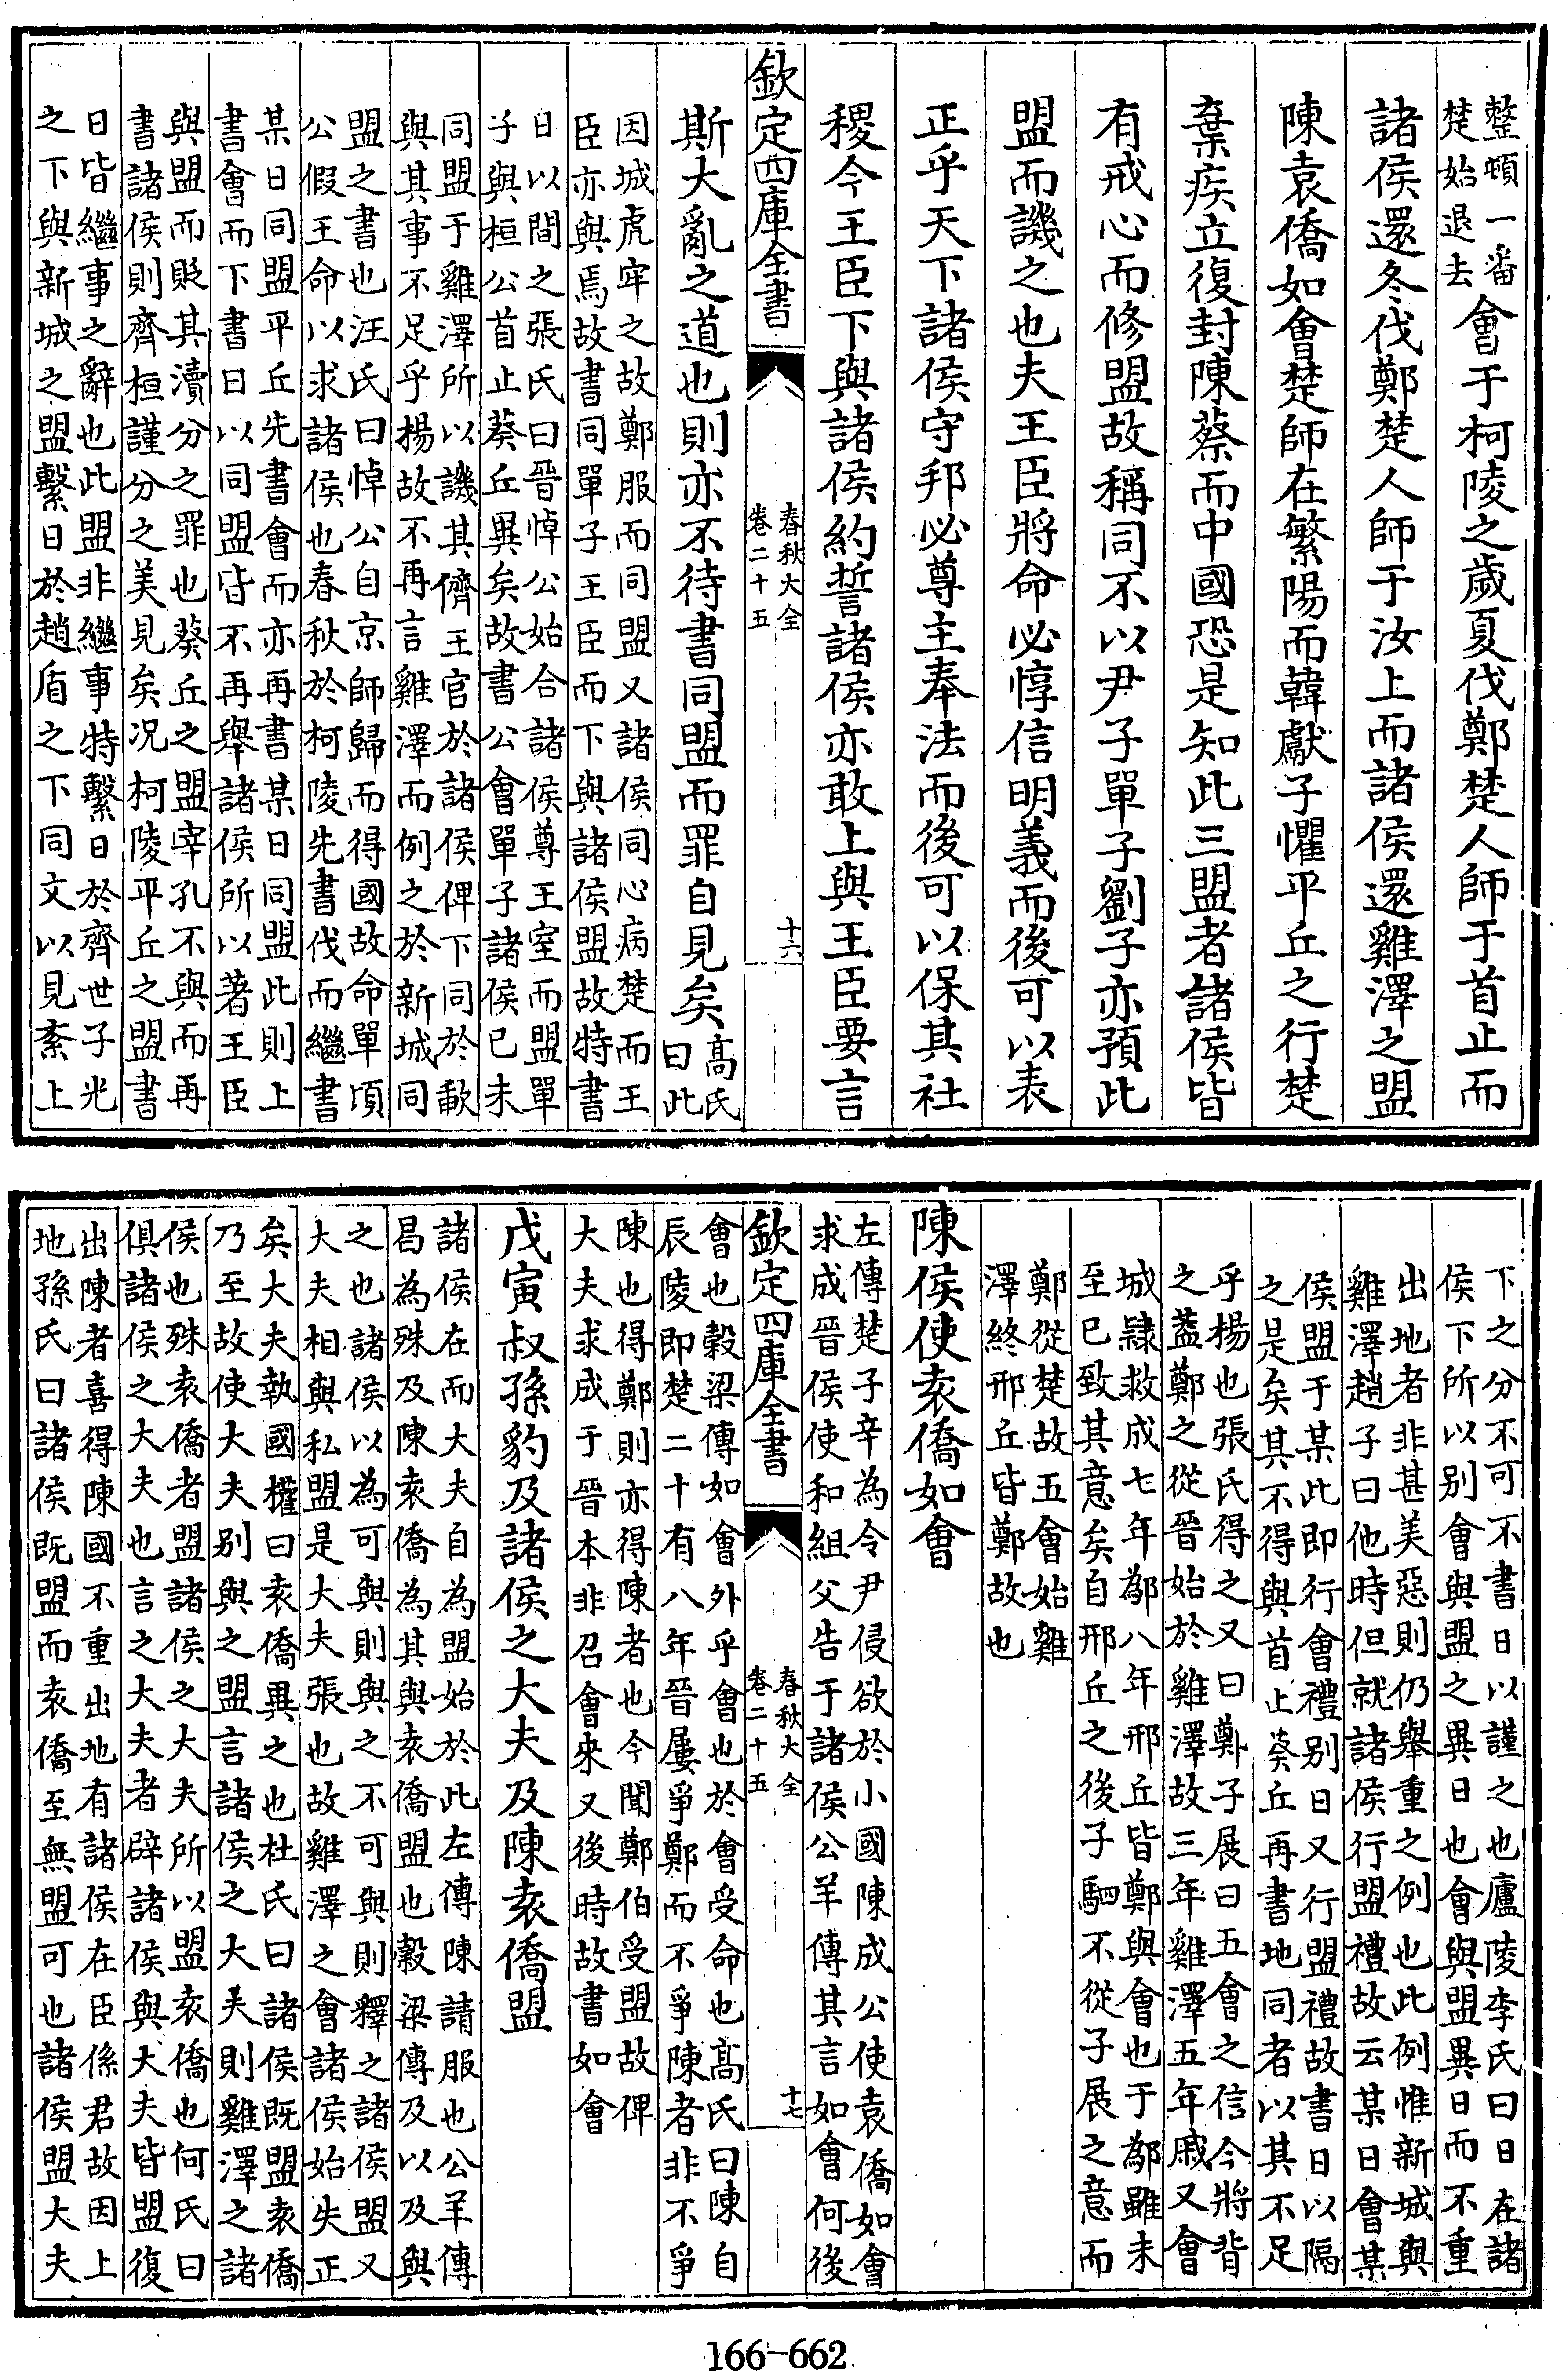 整頓一番
楚始退去
會于柯陵之歲夏伐鄭楚人師于首止而
諸侯還冬伐鄭楚人師于汝上而諸侯還雞澤之盟
陳袁僑如會楚師在繁陽而韓獻子懼平丘之行楚
棄疾立復封陳蔡而中國恐是知此三盟者諸侯皆
有戒心而修盟故稱同不以尹子單子劉子亦預此
盟而譏之也夫王臣將命必惇信明義而後可以表
正乎天下諸侯守邦必尊主奉法而後可以保其社
稷今王臣下與諸侯約誓諸侯亦敢上與王臣要言
欽定四庫全書
春秋大全
卷二十五
十六
斯大亂之道也則亦不待書同盟而罪自見矣
高氏
曰此
因城虎牢之故鄭服而同盟又諸侯同心病楚而王
臣亦與焉故書同單子王臣而下與諸侯盟故特書
日以間之張氏曰晉悼公始合諸侯尊王室而盟單
子與桓公首止葵丘異矣故書公會單子諸侯已未
同盟于雞澤所以譏其儕王官於諸侯俾下同於歃
與其事不足乎揚故不再言雞澤而例之於新城同
盟之書也汪氏曰悼公自京師歸而得國故命單頃
公假王命以求諸侯也春秋於柯陵先書伐而繼書
某日同盟平丘先書會而亦再書某日同盟此則上
書會而下書日以同盟皆不再舉諸侯所以著王臣
與盟而貶其瀆分之罪也葵丘之盟宰孔不與而再
書諸侯則齊桓謹分之美見矣況柯陵平丘之盟書
日皆繼事之辭也此盟非繼事特繫日於齊世子光
之下與新城之盟繫日於趙盾之下同文以見紊上
下之分不可不書日以謹之也廬陵李氏曰日在諸
侯下所以别會與盟之異日也會與盟異日而不重
出地者非甚美惡則仍舉重之例也此例惟新城與
雞澤趙子曰他時但就諸侯行盟禮故云某日會某
侯盟于某此即行會禮别日又行盟禮故書日以隔
之是矣其不得與首止葵丘再書地同者以其不足
乎揚也張氏得之又曰鄭子展曰五會之信今將背
之葢鄭之從晉始於雞澤故三年雞澤五年戚又會
城隷救成七年鄬八年邢丘皆鄭與會也于鄬雖未
至已致其意矣自邢丘之後子駟不從子展之意而
鄭從楚故五會始雞
澤終邢丘皆鄭故也
陳侯使袁僑如會
左傳楚子辛為令尹侵欲於小國陳成公使袁僑如會
求成晉侯使和組父告于諸侯公羊傳其言如會何後
欽定四庫全書
春秋大全
卷二十五
十七
會也穀梁傳如會外乎會也於會受命也高氏曰陳自
辰陵即楚二十有八年晉屢爭鄭而不爭陳者非不爭
陳也得鄭則亦得陳者也今聞鄭伯受盟故俾
大夫求成于晉本非召會來又後時故書如會
戊寅叔孫豹及諸侯之大夫及陳袁僑盟
諸侯在而大夫自為盟始於此左傳陳請服也公羊傳
曷為殊及陳袁僑為其與袁僑盟也穀梁傳及以及與
之也諸侯以為可與則與之不可與則釋之諸侯盟又
大夫相與私盟是大夫張也故雞澤之會諸侯始失正
矣大夫執國權曰袁僑異之也杜氏曰諸侯既盟袁僑
乃至故使大夫别與之盟言諸侯之大夫則雞澤之諸
侯也殊袁僑者盟諸侯之大夫所以盟袁僑也何氏曰
俱諸侯之大夫也言之大夫者辟諸侯與大夫皆盟復
出陳者喜得陳國不重出地有諸侯在臣係君故因上
地孫氏曰諸侯既盟而袁僑至無盟可也諸侯盟大夫
166-662